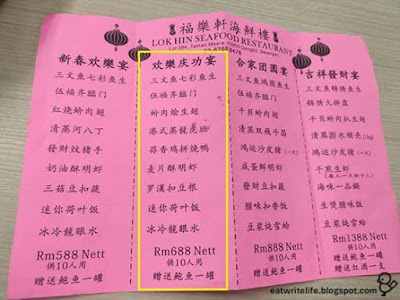 福樂軒海鮮樓
LOK HIN SEAFOOD RESTAURANT
新春欢樂宴
三文鱼七彩鱼生
伍福齐臨门
红烧蚧肉翅
清蒸河八丁
發財炆猪手
奶油酥明虾
三菇豆扣蔬
迷你荷叶饭
冰冷龍眼水
Rm588 Nett
供10人用
赠送鲍鱼一罐
欢樂庆功宴
三文鱼七彩鱼生
伍福齐臨门
蚧肉烩生翅
港式蒸龍虎班
蒜香鸡拼烧鸭
麦片酥明虾
罗漢扣豆根
迷你荷叶饭
冰冷龍眼水
Rm688 Nett
供10人用
赠送鲍鱼一罐
合家团圆宴
三文鱼鴻图鱼生
伍福齐臨门
干貝蚧肉翅
清蒸双飛斗昌
鴻运沙皮猪(一只)
咸蛋鲜明虾
發財豆扣蔬
腊味扣香饭
豆浆炖雪蛤
Rm888 Nett
供10人用
赠送鲍鱼一罐
吉祥發财宴
三文鱼錦綉鱼生
錦綉大拼盘
干貝蚧肉扒生翅
清蒸游水順壳(1kg)
鴻运沙皮猪(一只)
干煎生虾
海味一品鍋
生煲腊味饭
豆浆炖雪蛤
Rm1388 Nett
供10人用
赠送鲍鱼一罐
赠送红酒一支
eatwritelife.blogspot.com